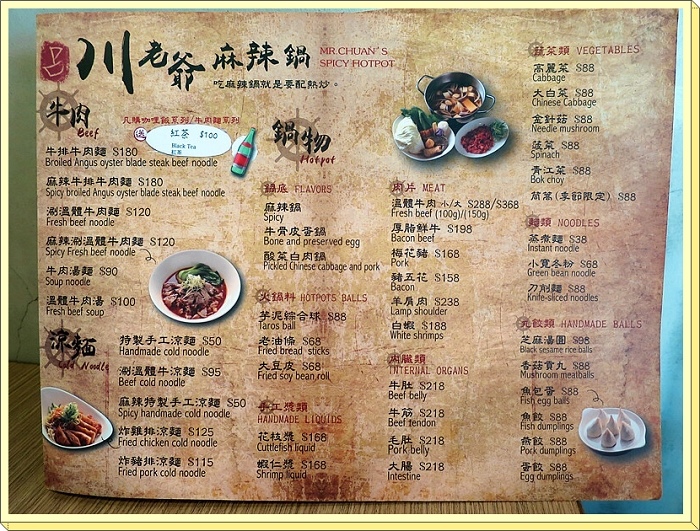 川老爺麻辣鍋
MR.CHUAN'S
SPICY HOTPOT
吃麻辣鍋就是要配熱炒。
牛肉
Beef
凡購咖哩飯系列/牛肉麵系列
送 紅茶 $100
Black Tea
紅茶
牛排牛肉麵 $180
Broiled Angus oyster blade steak beef noodle
麻辣牛排牛肉麵 $180
Spicy broiled Angus oyster blade steak beef noodle
涮溫體牛肉麵 $120
Fresh beef noodle
麻辣涮溫體牛肉麵 $120
Spicy Fresh beef noodle
牛肉湯麵 $90
Soup noodle
溫體牛肉湯 $100
Fresh beef soup
涼麵
Cold Noodle
特製手工涼麵 $50
Handmade cold noodle
涮溫體牛涼麵 $95
Beef cold noodle
麻辣特製手工涼麵 $50
Spicy handmade cold noodle
炸雞排涼麵 $125
Fried chicken cold noodle
炸豬排涼麵 $115
Fried pork cold noodle
鍋物
Hotpot
鍋底 FLAVORS
麻辣鍋
Spicy
牛骨皮蛋鍋
Bone and preserved egg
酸菜白肉鍋
Pickled Chinese cabbage and pork
火鍋料 HOTPOTS BALLS
芋泥綜合球 $88
Taros ball
老油條 $68
Fried bread sticks
大豆皮 $68
Fried soy bean roll
手工漿類
HANDMADE LIQUIDS
花枝漿 $168
Cuttlefish liquid
蝦仁漿 $168
Shrimp liquid
肉片 MEAT
溫體牛肉 小/大 $288/$368
Fresh beef (100g)/(150g)
厚脂鮮牛 $198
Bacon beef
梅花豬 $168
Pork
豬五花 $158
Bacon
羊肩肉 $238
Lamp shoulder
白蝦 $188
White shrimps
內臟類
INTERNAL ORGANS
牛肚 $218
Beef belly
牛筋 $218
Beef tendon
毛肚 $218
Pork belly
大腸 $218
Intestine
蔬菜類 VEGETABLES
高麗菜 $88
Cabbage
大白菜 $88
Chinese Cabbage
金針菇 $88
Needle mushroom
菠菜 $88
Spinach
青江菜 $88
Bok choy
茼蒿(季節限定) $88
麵類 NOODLES
蒸煮麵 $38
Instant noodle
小寬冬粉 $68
Green bean noodle
刀削麵 $88
Knife-sliced noodles
丸餃類 HANDMADE BALLS
芝麻湯圓 $98
Black sesame rice balls
香菇貢丸 $88
Mushroom meatballs
魚包香 $88
Fish egg balls
魚餃 $88
Fish dumplings
燕餃 $88
Pork dumplings
蛋餃 $88
Egg dumplings